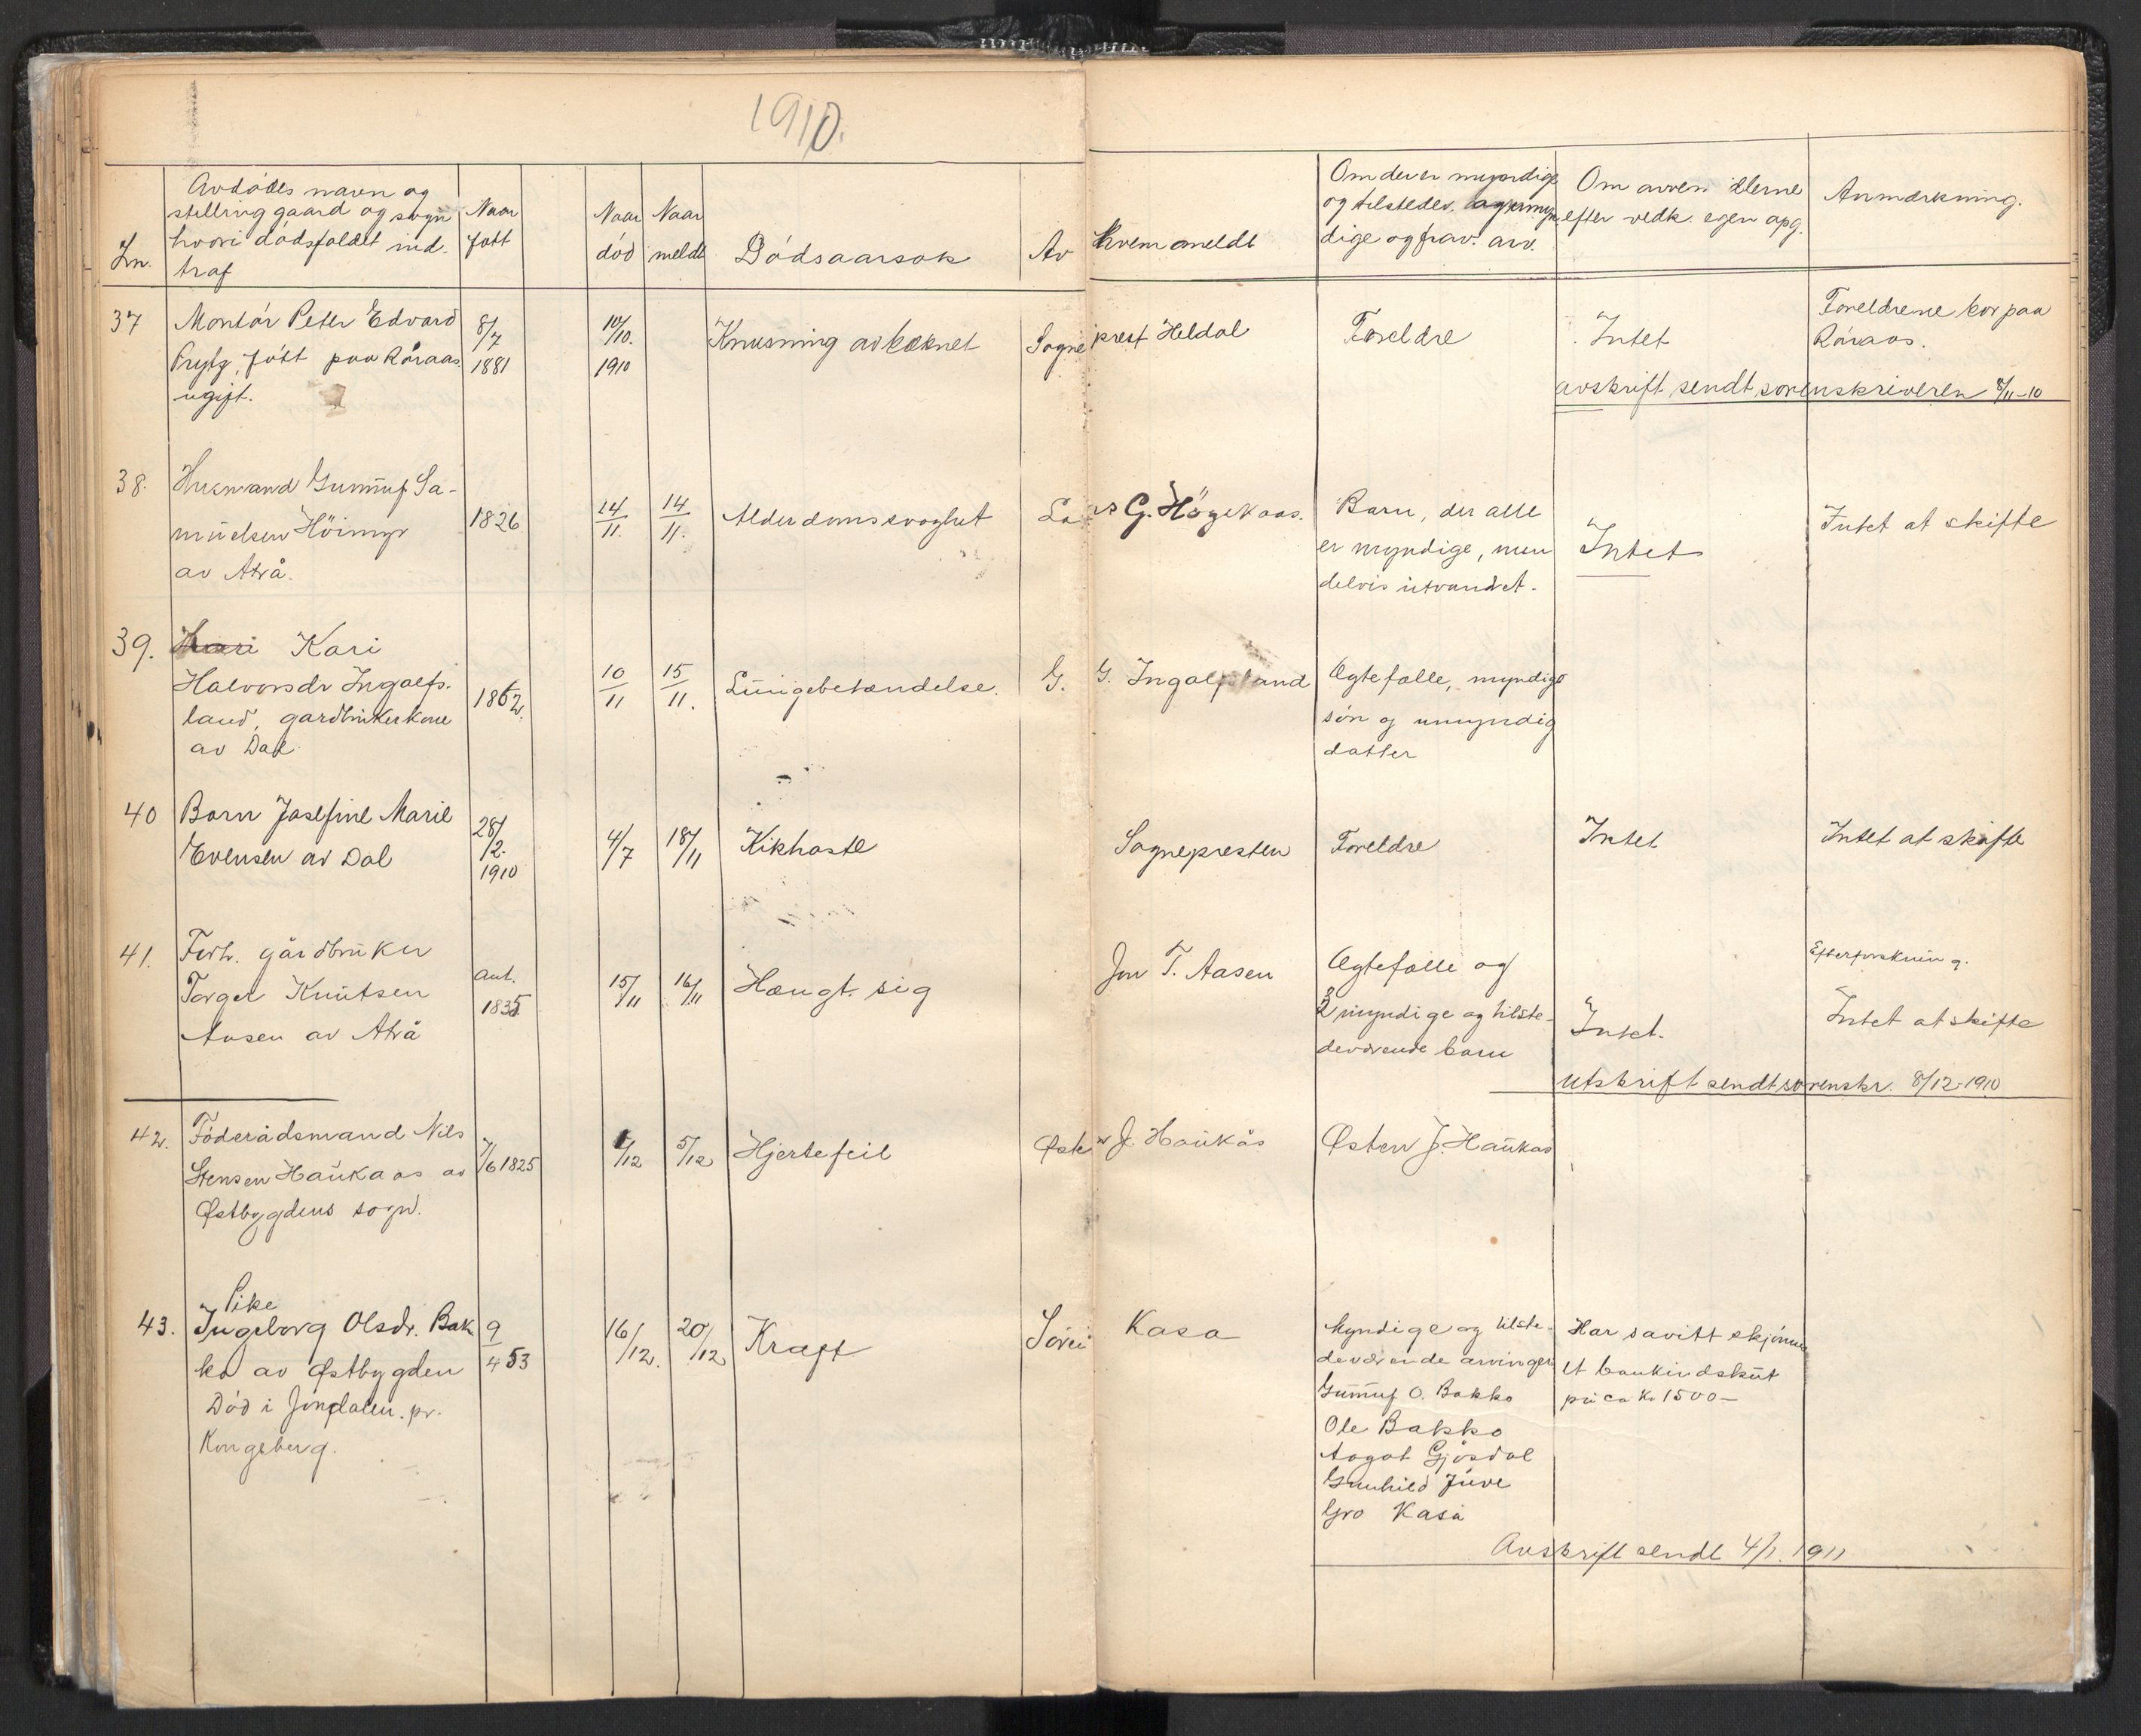 1910.
Lnr.
Avdødes navn og
stilling gaard og sogn
hvori dødsfaldet ind-
traf
Naar
født
Naar
død
Naar
meldt
Dødsaarsak
Av hvem meldt
Om der er myndige
og tilstedev.
dige og frav. arv.
Om avven
efter vedk. egen opg.
Anmærkning.
37 Montør Peter Edvard
Prytz, født paa Røraas
ugift.
8/7
1881
10/10.
1910
Knusning av bæknet
Sogneprest Heldal
Foreldre
Intet
Foreldrene bor paa
Røraas.
avskrift sendt sorenskriveren 8/11-10
38. Husmand Gunnuf Sa-
muelsen Høimyr
av Atrå.
1826
14/11.
14/11.
Alderdomssvaghet
Lars G. Høgekaas.
Barn, der alle
er myndige, men
delvis utvandret.
Intet
Intet at skifte
39. Kari
Halvorsdr Ingolfs-
land, gardbrukerkone
av Dal.
1862.
10/11
15/11.
Lungebetændelse.
G. G. Ingolfsland
Ægtefælle, myndig
søn og umyndig
datter
40 Barn Josefine Marie
Evensen av Dal
28/2.
1910
4/7
18/11
Kikhoste
Sognepresten
Foreldre
Intet
Intet at skifte
41. Forh. gårdbruker
Torger Knutsen
Aasen av Atrå
Ant.
1835
15/11
16/11
Hængt sig
Jon T. Aasen
Ægtefælle og
2 myndige og tilste-
deværende barn
Intet.
Efterforskning.
Intet at skifte
Utskrift sendt sorenskr. 8/12-1910
42. Føderådsmand Nils
Stensen Haukaas av
Østbygdens sogn.
7/6 1825
/12
5/12
Hjertefeil
Østen J. Haukås
Østen J. Haukas
43. Pike
Ingeborg Olsdr. Bak
ko av Østbygden
Død i Jondalen pr.
Kongsberg.
9/4 53
16/12.
20/12
Kræft
Kasa
Myndige og tilste-
deværende arvinger
Gunnuf O. Bakko
Ole Bakko
Aagot Gjøsdal
Gunhild Juve
Gro Kasa
Har savitt skjønnes
et bankindskut
på ca Kr 1500-
Avskrift sendt 4/1. 1911